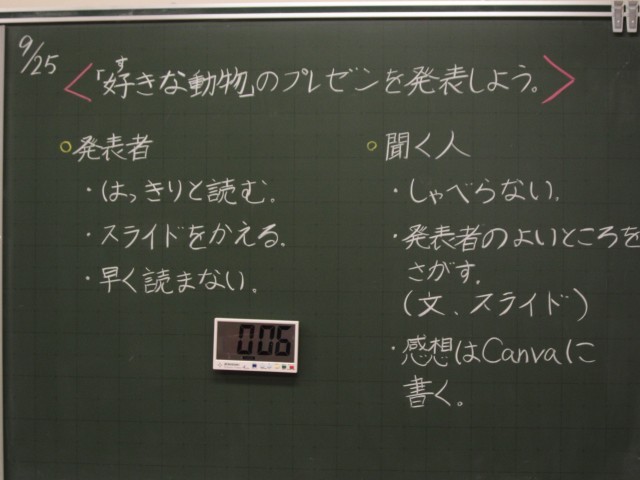 9/25
<「好きな動物」のプレゼンを発表しよう。>
す
○発表者
・はっきりと読む。
・スライドをかえる。
・早く読まない。
○聞く人
・しゃべらない。
・発表者のよいところを
さがす。
(文、スライド)
・感想はCanvaに
書く。
0:06